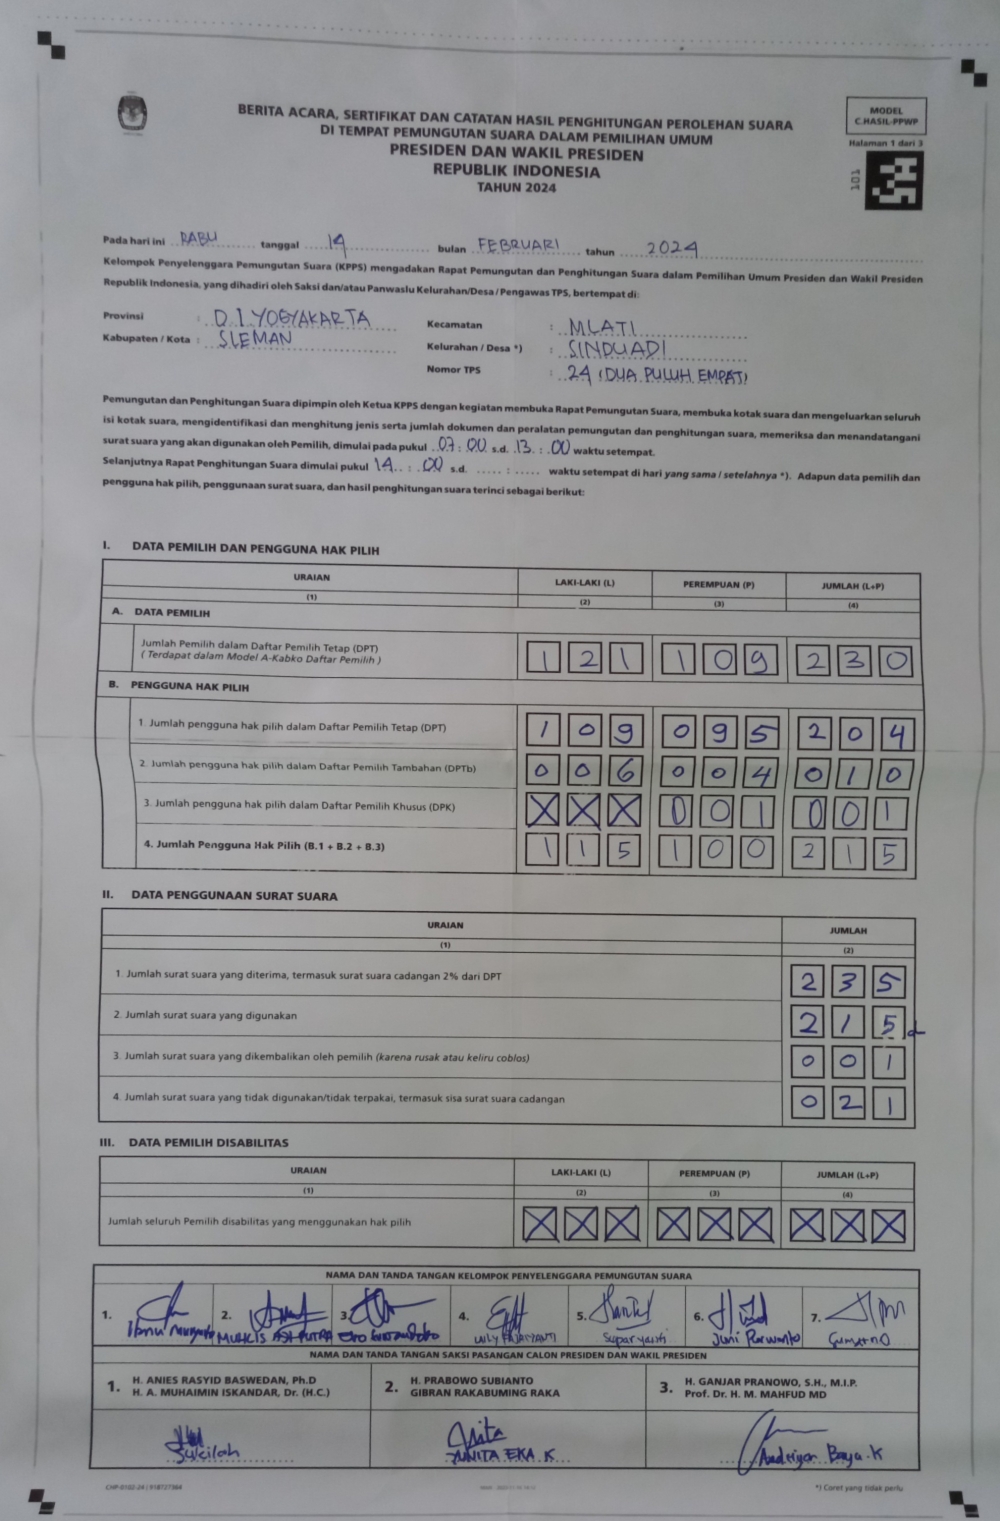 BERITA ACARA, SERTIFIKAT DAN CATATAN HASIL PENGHITUNGAN PEROLEHAN SUARA
DI TEMPAT PEMUNGUTAN SUARA DALAM PEMILIHAN UMUM
PRESIDEN DAN WAKIL PRESIDEN
REPUBLIK INDONESIA
TAHUN 2024
MODEL
C.HASIL-PPWP
Halaman 1 dari 3
101
Pada hari ini RABU tanggal 14 bulan FEBRUARI tahun 2024
Kelompok Penyelenggara Pemungutan Suara (KPPS) mengadakan Rapat Pemungutan dan Penghitungan Suara dalam Pemilihan Umum Presiden dan Wakil Presiden
Republik Indonesia, yang dihadiri oleh Saksi dan/atau Panwaslu Kelurahan/Desa / Pengawas TPS, bertempat di:
Provinsi : D.I. YOGYAKARTA Kecamatan : MLATI
Kabupaten / Kota : SLEMAN Kelurahan / Desa *) : SINDUADI
Nomor TPS : 24 (DUA PULUH EMPAT)
Pemungutan dan Penghitungan Suara dipimpin oleh Ketua KPPS dengan kegiatan membuka Rapat Pemungutan Suara, membuka kotak suara dan mengeluarkan seluruh
isi kotak suara, mengidentifikasi dan menghitung jenis serta jumlah dokumen dan peralatan pemungutan dan penghitungan suara, memeriksa dan menandatangani
surat suara yang akan digunakan oleh Pemilih, dimulai pada pukul 07 : 00 s.d. 13 : 00 waktu setempat.
Selanjutnya Rapat Penghitungan Suara dimulai pukul 14 : 00 s.d. ...... : ...... waktu setempat di hari yang sama / setelahnya *). Adapun data pemilih dan
pengguna hak pilih, penggunaan surat suara, dan hasil penghitungan suara terinci sebagai berikut:
I. DATA PEMILIH DAN PENGGUNA HAK PILIH
URAIAN LAKI-LAKI (L) PEREMPUAN (P) JUMLAH (L+P)
(1) (2) (3) (4)
A. DATA PEMILIH
Jumlah Pemilih dalam Daftar Pemilih Tetap (DPT)
( Terdapat dalam Model A-Kabko Daftar Pemilih ) 1 2 1 1 0 9 2 3 0
B. PENGGUNA HAK PILIH
1. Jumlah pengguna hak pilih dalam Daftar Pemilih Tetap (DPT) 1 0 9 0 9 5 2 0 4
2. Jumlah pengguna hak pilih dalam Daftar Pemilih Tambahan (DPTb) 0 0 6 0 0 4 0 1 0
3. Jumlah pengguna hak pilih dalam Daftar Pemilih Khusus (DPK) X X X 0 0 1 0 0 1
4. Jumlah Pengguna Hak Pilih (B.1 + B.2 + B.3) 1 1 5 1 0 0 2 1 5
II. DATA PENGGUNAAN SURAT SUARA
URAIAN JUMLAH
(1) (2)
1. Jumlah surat suara yang diterima, termasuk surat suara cadangan 2% dari DPT 2 3 5
2. Jumlah surat suara yang digunakan 2 1 5
3. Jumlah surat suara yang dikembalikan oleh pemilih (karena rusak atau keliru coblos) 0 0 1
4. Jumlah surat suara yang tidak digunakan/tidak terpakai, termasuk sisa surat suara cadangan 0 2 1
III. DATA PEMILIH DISABILITAS
URAIAN LAKI-LAKI (L) PEREMPUAN (P) JUMLAH (L+P)
(1) (2) (3) (4)
Jumlah seluruh Pemilih disabilitas yang menggunakan hak pilih X X X X X X X X X
NAMA DAN TANDA TANGAN KELOMPOK PENYELENGGARA PEMUNGUTAN SUARA
1. 2. 3. 4. 5. 6. 7.
Ibnu MUKLIS ADI PUTRA Suparyanti Juni Purwanto
NAMA DAN TANDA TANGAN SAKSI PASANGAN CALON PRESIDEN DAN WAKIL PRESIDEN
1. H. ANIES RASYID BASWEDAN, Ph.D
H. A. MUHAIMIN ISKANDAR, Dr. (H.C.)
2. H. PRABOWO SUBIANTO
GIBRAN RAKABUMING RAKA
3. H. GANJAR PRANOWO, S.H., M.I.P.
Prof. Dr. H. M. MAHFUD MD
Sukilah JUNITA EKA. K Baya. K
*) Coret yang tidak perlu